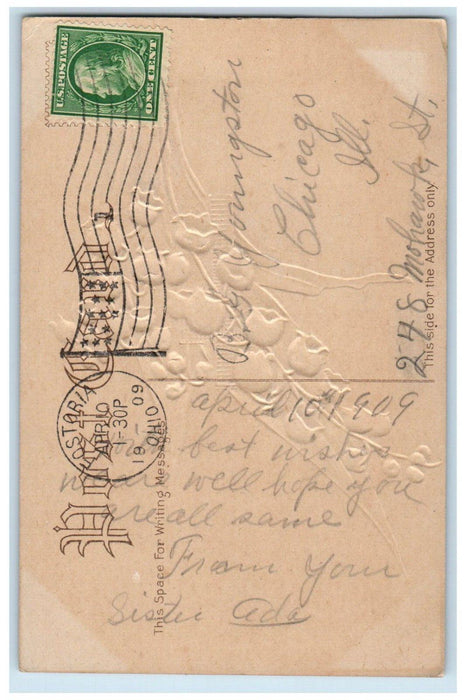 U.S. POSTAGE
ONE CENT
Post Card
FOSTORIA
APR 10
1-30P
19 09
OHIO
This Space For Writing Messages
This side for the Address only
Youngston
Chicago
Ill.
248 Mohawk St.
april 10th 1909
best wishes
we are well hope you
are all same
From Your
Sister Ada